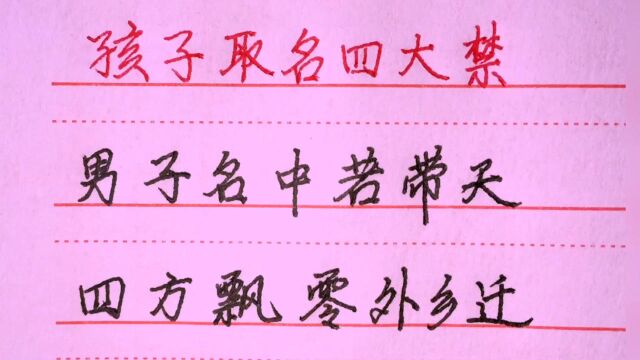 孩子取名四大禁
男子名中若带天
四方飘零外乡迁